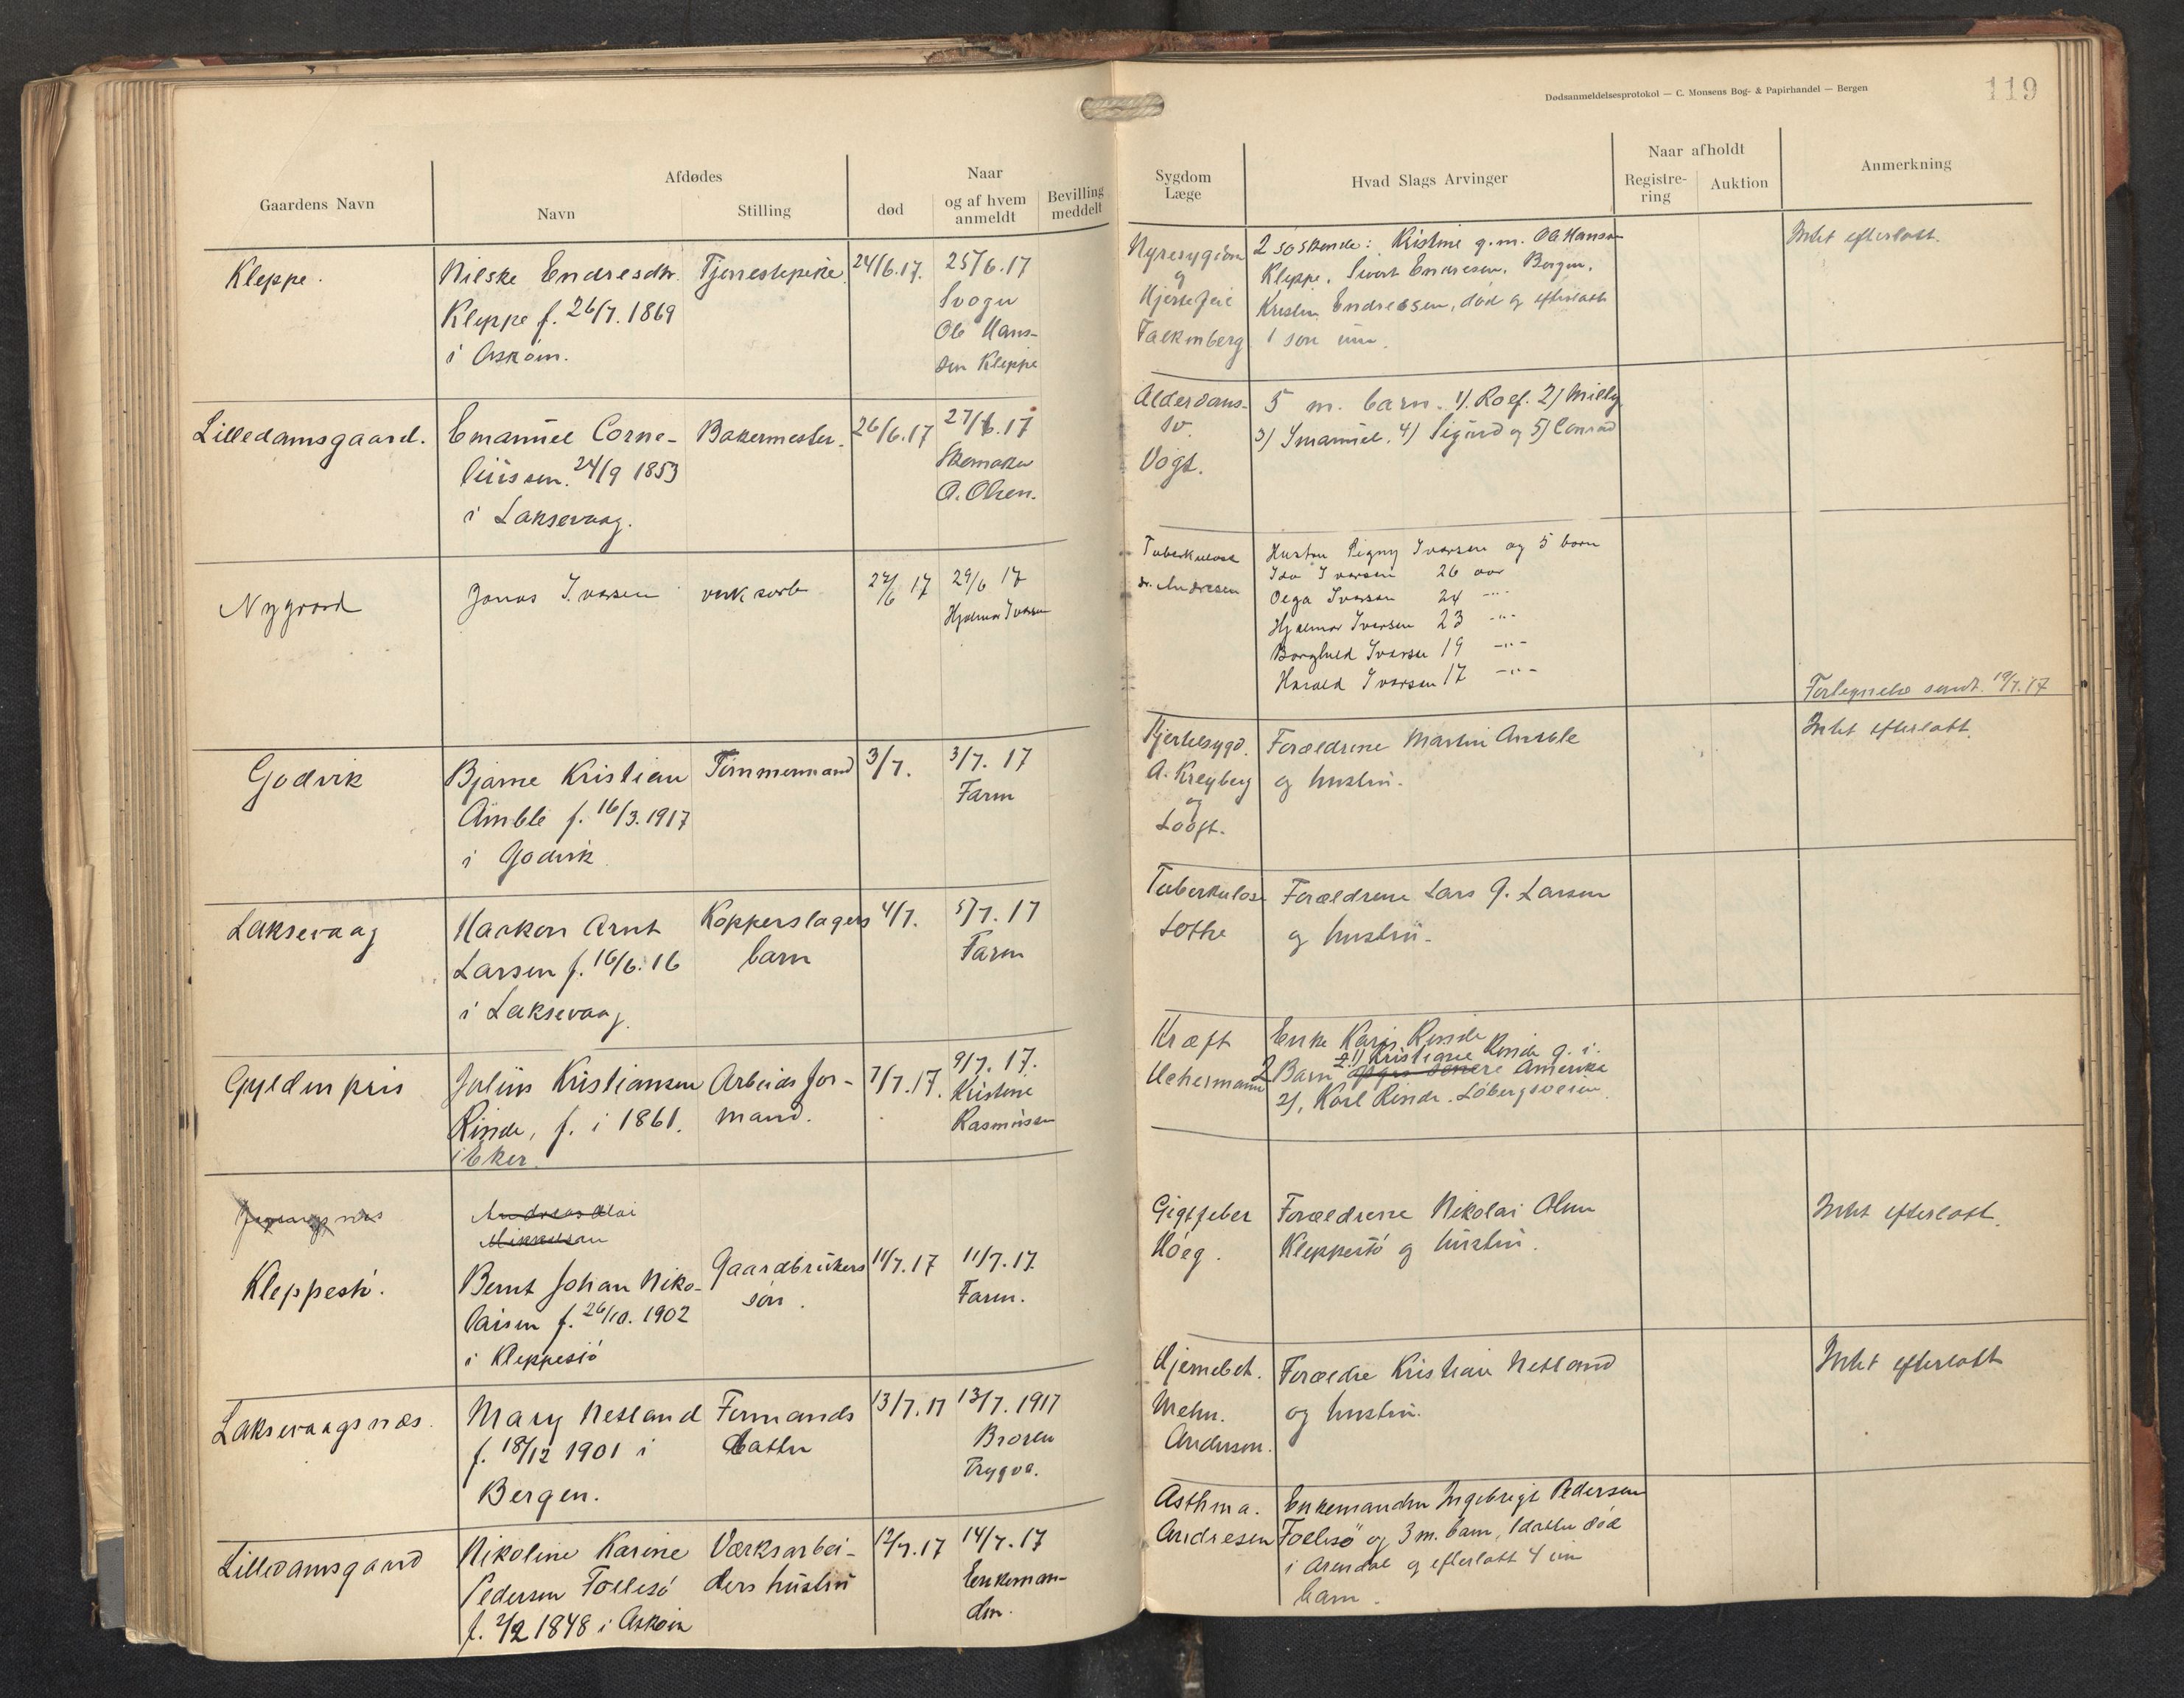 Dødsanmeldelsesprotokol — C. Monsens Bog- & Papirhandel — Bergen
119
Gaardens Navn
Afdødes
Navn
Stilling
Naar
død
og af hvem
anmeldt
Bevilling
meddelt
Sygdom
Læge
Hvad Slags Arvinger
Naar afholdt
Registre-
ring
Auktion
Anmerkning
Kleppe.
Nilske Endresdtr.
Kleppe f. 26/7. 1869
i Askøin.
Tjenestepike
24/6.17.
25/6.17
Svoger
Ole Hans-
sen Kleppe
Nyresygdom
og
Hjertefeil
Falkenberg
2 søskende: Kristine g.m. Ole Hansen
Kleppe, Sivert Endresen, Bergen.
Endresen, død og efterlatt
1 søn um.
Intet efterlatt.
Lilledamsgaard.
Emanuel Corne-
liussen. 24/9 1853
i Laksevaag.
Bakermester.
26/6.17
27/6.17
Skomaker
A. Olsen.
Alderdoms-
sv.
Vogt.
5 m. barn. 1). Rolf. 2) Milly
3) Imanuel. 4) Sigurd og 5) Conrad
Nygaard
Jonas Iversen
verksarb
27/6 17
29/6 17
Hjalmar Iversen
Tuberkulose
dr. Andresen
Hustru Signy Iversen og 5 born
Ida Iversen 26 aar
Olga Iversen 24 -"-
Hjalmar Iversen 23 -"-
Borghild Iversen 19 -"-
Harald Iversen 17 -"-
sendt. 19/7.17
Godvik
Bjarne Kristian
Amble f. 16/3. 1917
i Godvik
Tømmermand
3/7.
3/7. 17
Faren
Hjertesygd.
A. Kreyberg
og
Looft.
Forældrene Martin Amble
og hustru.
Intet efterlatt.
Laksevaag
Haakon Arnt
Larsen f. 16/6.16
i Laksevaag
Kopperslagers
barn
4/7.
5/7. 17
Faren
Tuberkulose
Lothe
Forældrene Lars G. Larsen
og hustru.
Gyldenpris
Julius Kristiansen
Rinde, f. i 1861.
i Eker.
Arbeidsfor-
mand.
7/7.17.
9/7. 17.
Kristine
Rasmussen
Kræft
Uchermann
Enke Kari Rinde
2 Barn 1) Kristiane Rinde g. i.
Amerika
2). Karl Rinde. Løbergsveien.
næs
Andreas Olai
Mikkelsen
Kleppestø.
Bernt Johan Niko-
laisen f. 26/10. 1902
i Kleppestø
Gaardbrukers
søn.
11/7.17
11/7.17.
Faren.
Gigtfeber
Høeg.
Forældrene Nikolai Olsen
Kleppestø og hustru.
Intet efterlatt.
Laksevaagsnæs.
Mary Netland
f. 18/12 1901 i
Bergen.
Formands
datter
13/7.17
13/7. 1917
Broren
Trygve.
Hjernebet.
Mehn.
Anderson.
Forældre Kristian Netland
og hustru.
Intet efterlatt
Lilledamsgaard
Nikoline Karine
Pedersen Follesø
f. 2/2 1848 i Askøin
Værksarbei-
ders hustru
12/7.17
14/7.17
Enkeman-
den.
Asthma.
Andresen
Enkemanden Ingebrigt Pedersen
Follesø og 3 m. barn, 1 datter død
i Arendal og efterlatt 4 um
barn.